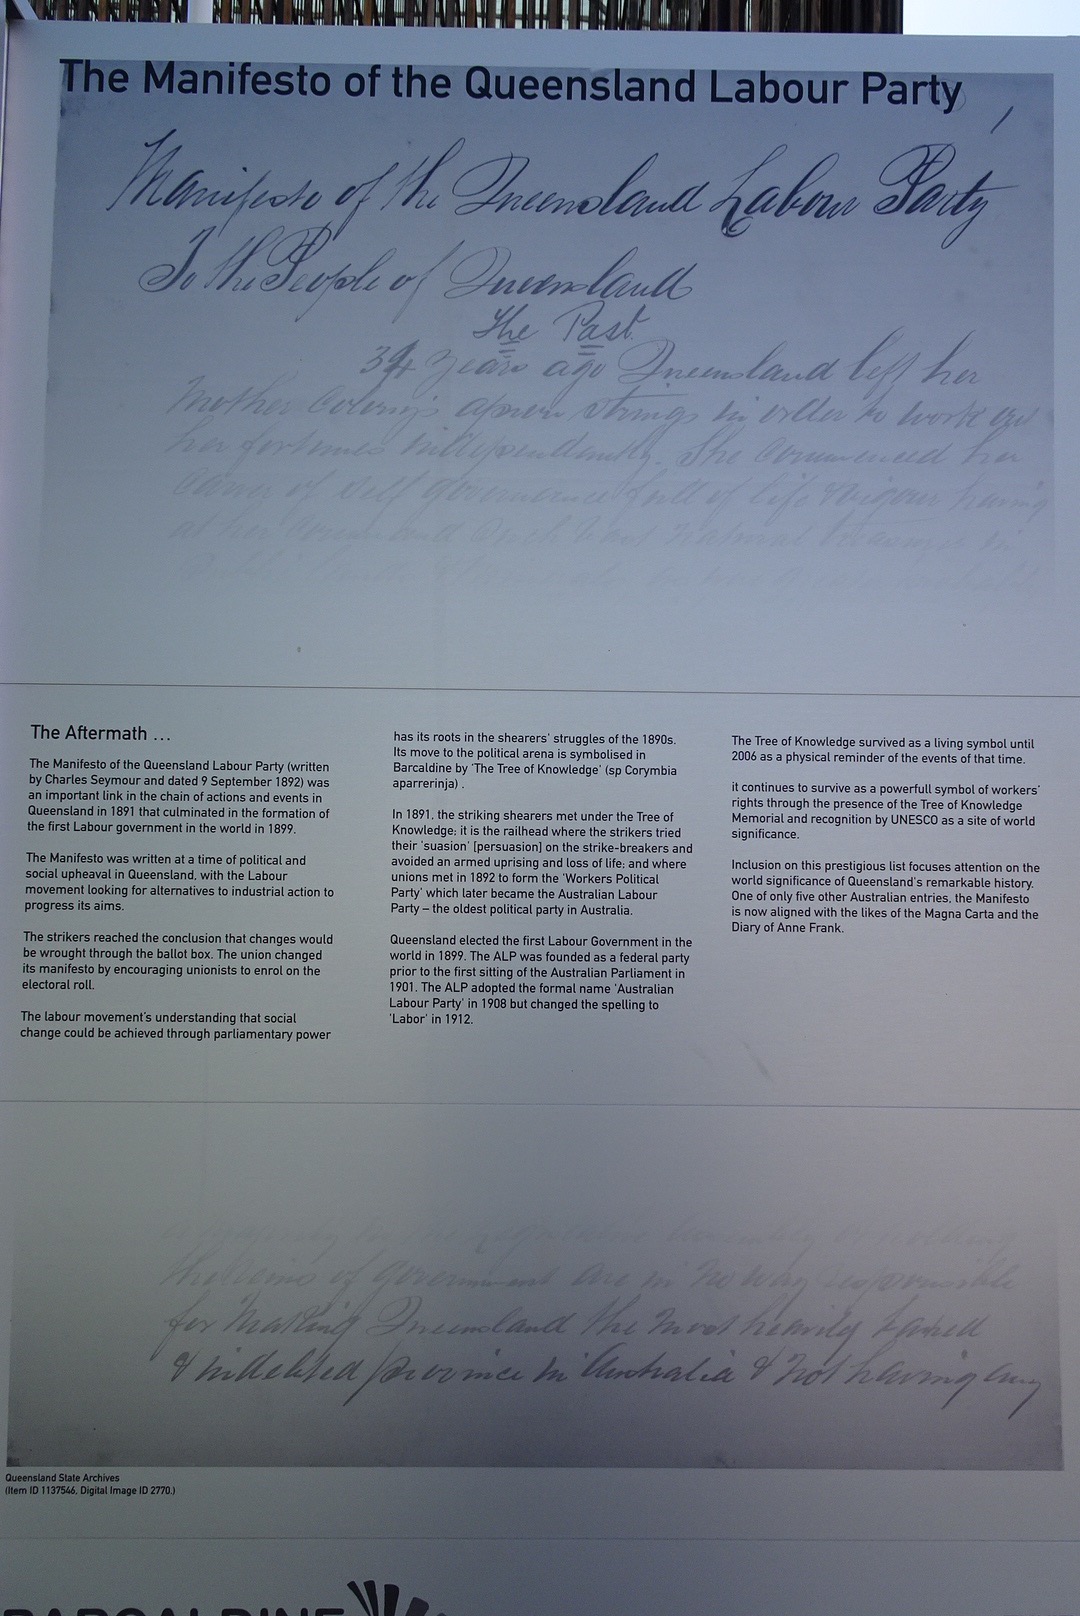 The Manifesto of the Queensland Labour Party
1
Manifesto of the Queensland Labour Party
To the People of Queensland
The Past
34 years ago Queensland left her
Mother Colony's apron strings in order to work out
her fortunes independantly. She commenced her
career of self governance full of life & vigour having
at her command such vast natural treasures in
The Aftermath ...
The Manifesto of the Queensland Labour Party (written
by Charles Seymour and dated 9 September 1892) was
an important link in the chain of actions and events in
Queensland in 1891 that culminated in the formation of
the first Labour government in the world in 1899.
The Manifesto was written at a time of political and
social upheaval in Queensland, with the Labour
movement looking for alternatives to industrial action to
progress its aims.
The strikers reached the conclusion that changes would
be wrought through the ballot box. The union changed
its manifesto by encouraging unionists to enrol on the
electoral roll.
The labour movement's understanding that social
change could be achieved through parliamentary power
has its roots in the shearers' struggles of the 1890s.
Its move to the political arena is symbolised in
Barcaldine by 'The Tree of Knowledge' (sp Corymbia
aparrerinja) .
In 1891, the striking shearers met under the Tree of
Knowledge; it is the railhead where the strikers tried
their 'suasion' [persuasion] on the strike-breakers and
avoided an armed uprising and loss of life; and where
unions met in 1892 to form the 'Workers Political
Party' which later became the Australian Labour
Party – the oldest political party in Australia.
Queensland elected the first Labour Government in the
world in 1899. The ALP was founded as a federal party
prior to the first sitting of the Australian Parliament in
1901. The ALP adopted the formal name 'Australian
Labour Party' in 1908 but changed the spelling to
'Labor' in 1912.
The Tree of Knowledge survived as a living symbol until
2006 as a physical reminder of the events of that time.
it continues to survive as a powerfull symbol of workers'
rights through the presence of the Tree of Knowledge
Memorial and recognition by UNESCO as a site of world
significance.
Inclusion on this prestigious list focuses attention on the
world significance of Queensland's remarkable history.
One of only five other Australian entries, the Manifesto
is now aligned with the likes of the Magna Carta and the
Diary of Anne Frank.
the reins of Government are in no way responsible
for making Queensland the most heavily taxed
& indebted province in Australia & not having any
Queensland State Archives
(Item ID 1137546, Digital Image ID 2770.)
BARCALDINE